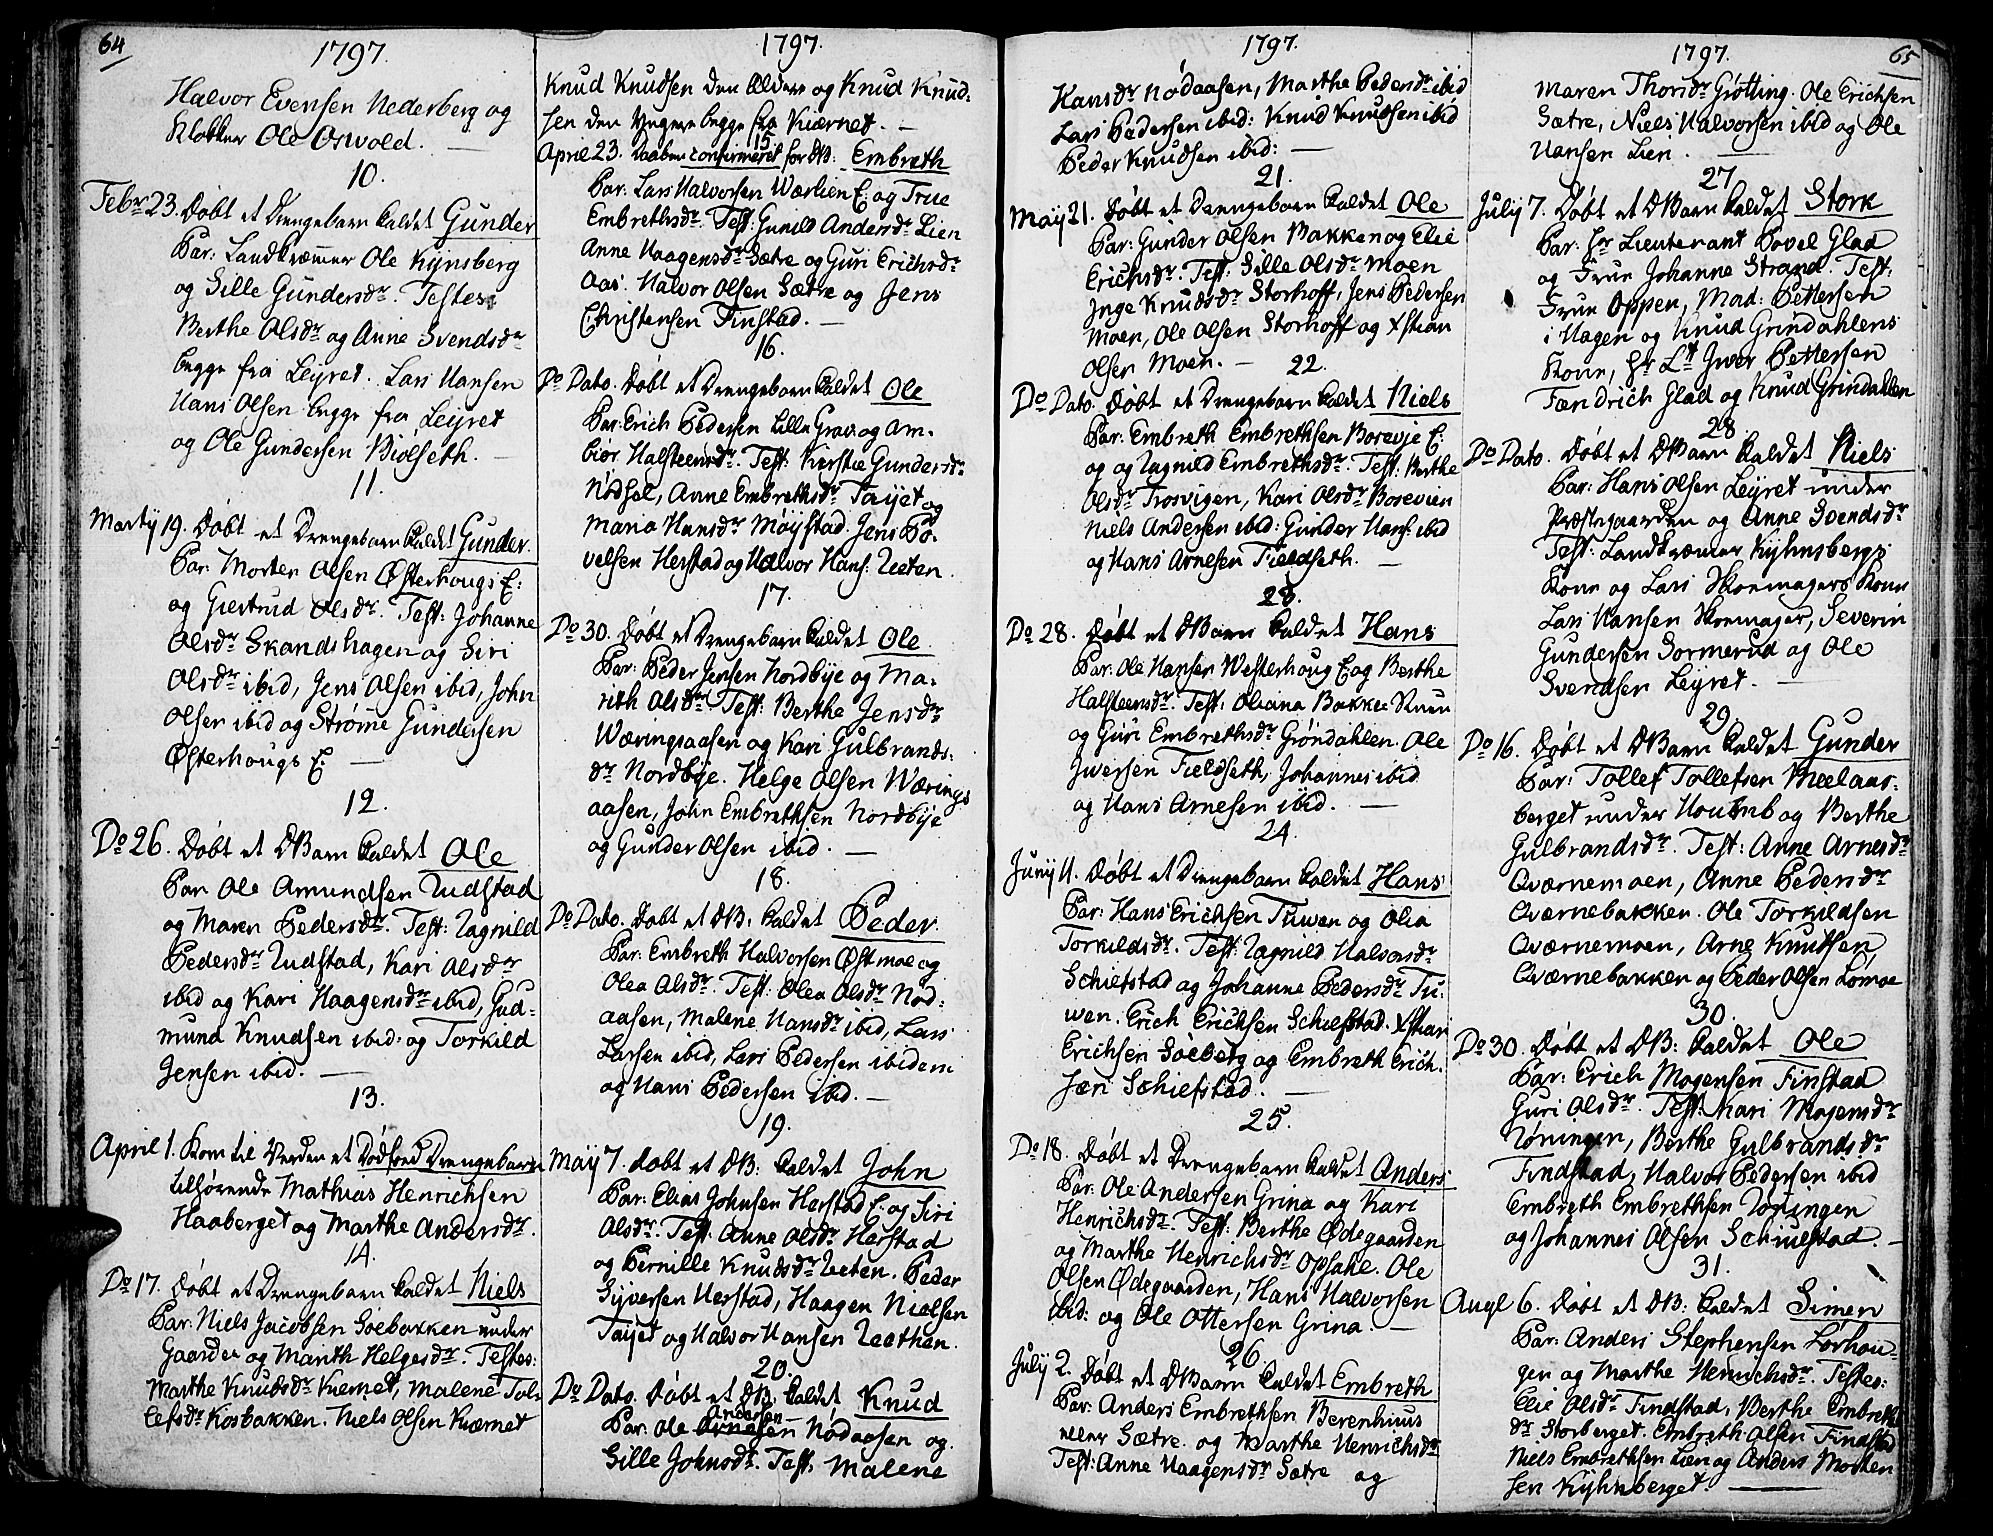 64
1797.
Halvor Evensen Nederberg og
Klokker Ole Oswold. —
10.
Febr 23. Døbt et Drengebarn kaldet Gunder
Par: Landkræmer Ole Kynsberg
og Sille Gundersdr. Testes:
Berthe Olsdr og Anne Svendsdr
begge fra Leyret. Lars Hansen
Hans Olsen begge fra Leyret
og Ole Gundersen Biølseth. —
11.
Martij 19. Døbt et Drengebarn kaldet Gunder.
Par: Morten Olsen Østerhougs E:
og Giertrud Olsdr. Test: Johanne
Olsdr Skandshagen og Siri
Olsdr ibid, Jens Olsen ibid, John
Olsen ibid og Strømme Gundersen
Østerhougs E. —
12.
Do 26. Døbt et DBarn kaldet Ole
Par Ole Amundsen Udstad
og Maren Pedersdr. Test: Ragnild
Pedersdr Udstad, Kari Olsdr
ibid og Kari Haagensdr ibid, Gud-
mund Knudsen ibid. og Torkild
Jensen ibid. —
13.
April 1. Kom til Verden et Dødfød Drengebarn
tilhørende Mathias Henrichsen
Haaberget og Marthe Andersdr.
14.
Do 17. Døbt et Drengebarn kaldet Niels
Par: Niels Jacobsen Soebakken under
Gaarder og Marith Helgesdr. Testes:
Marthe Knudsdr Kiernet, Malene Tol-
lefsdr Kosbakken. Niels Olsen Kværnet
1797.
Knud Knudsen den Ældere og Knud Knud-
sen den Yngere begge fra Kiærnet. —
15.
April 23. Daaben confirmeret for DB: Embreth
Par: Lars Halvorsen Wærlien E. og True
Embrethsdr. Test: Gunild Andersdr Lien
Anne Haagensdr Sætre og Guri Erichsdr
Aas. Halvor Olsen Sætre og Jens
Christensen Finstad. —
16.
Do Dato. Døbt et Drengebarn kaldet Ole
Par: Erich Pedersen Lille Grav og Am-
biør Halsteensdr. Test: Kirstie Gundersdr
Nødsel, Anne Embrethsdr Taiet og
Maria Hansdr Møystad. Jens Po-
velsen Herstad og Halvor Hans: Leeten.
17.
Do 30. Døbt et Drengebarn kaldet Ole
Par: Peder Jensen Nordbye og Ma-
rith Olsdr Test: Berthe Jensdr
Wæringsaasen og Kari Gulbrands-
dr Nordbye. Helge Olsen Wærings
aasen, John Embrethsen Nordbye
og Gunder Olsen ibid. —
18.
Do Dato. Døbt et DB: kaldet Peder.
Par: Embreth Halvorsen Østmoe og
Olea Olsdr. Test: Olea Olsdr Nød-
aasen, Malene Hansdr ibid, Lars
Larsen ibid, Lars Pedersen ibidem
og Hans Pedersen ibid. —
19.
May 7. døbt et DB: kaldet John
Par: Elias Johnsen Harstad E. og Siri
Olsdr. Test: Anne Olsdr Harstad
og Pernille Knudsdr Leeten. Peder
Syversen Herstad, Haagen Nielsen
Taiet og Halvor Hansen Leethen.
20.
Do Dato. døbt et DB. kaldet Knud
Par: Ole Andersen Nødaasen og
Sille Johnsdr. Test: Malene
1797.
Hansdr Nødaasen, Marthe Pedersdr ibid
Lars Pedersen ibid: Knud Knudsen ibid
Peder Knudsen ibid: —
21.
May 21. Døbt et Drengebarn kaldet Ole
Par: Gunder Olsen Bakken og Elie
Erichsdr. Test: Sille Olsdr Moen
Inge Knudsdr Storhoff, Jens Pedersen
Moen, Ole Olsen Storhoff og Xstian
Olsen Moen. —
22.
Do Dato. Døbt et Drengebarn kaldet Niels
Par: Embreth Embrethsen Borevje E:
og og Ragnild Embrethsdr. Test: Berthe
Olsdr Trosvigen, Kari Olsdr Borevien
Niels Andersen ibid: Gunder Hans: ibid
og Hans Arnesen Fieldseth. —
23.
Do 28. Døbt et DBarn kaldet Hans
Par: Ole Hansen Westerhoug E. og Berthe
Halsteensdr. Test: Oliana Bakke
og Guri Embrethsdr Grøndahlen. Ole
Iwersen Fieldseth, Johannes ibid
og Hans Arnesen ibid. —
24.
Juny 11. Døbt et Drengebarn kaldet Hans
Par: Hans Erichsen Tuwen og Olea
Torkildsdr. Test: Ragnild Halvorsdr
Schiefstad og Johanne Pedersdr Tu-
wen. Erich Erichsen Schiefstad. Xstian
Erichsen Soeberg og Embreth Erich-
sen Schiefstad. —
25.
Do 18. Døbt et Drengebarn kaldet Anders
Par. Ole Andersen Grina og Kari
Henrichsdr. Test: Berthe Ødegaarden
og Marthe Henrichsdr Opsahe. Ole
Olsen Ødegaarden, Hans Halvorsen
ibid. og Ole Ottersen Grina. —
26.
July 2. Døbt et DBarn kaldet Embreth
Par: Anders Embrethsen Berenhuus
eller Sætre. og Marthe Henrichsdr
Test: Anne Haagensdr Sætre og
1797.
65
Maren Thorsdr Grøtting. Ole Erichsen
Sætre, Niels Halvorsen ibid og Ole
Hansen Lien. —
27.
July 7. Døbt et DBarn kaldet Stork
Par: Hr Lieutenant Povel Glad
og Frue Johanne Strand. Test:
Frue Oppen, Mad: Pettersen
i Hagen og Knud Grindahlens
Kone, Hr Lt Iwer Pettersen
Fændrich Glad og Knud Grindahlen
28.
Do Dato. Døbt et DBarn kaldet Niels
Par: Hans Olsen Leyret under
Præstegaarden og Anne Svendsdr
Test: Landkræmer Kyhnsbergs
Kone og Lars Skomagers Kone
Lars Hansen Skomager, Severin
Gundersen Sormerud og Ole
Svendsen Leyret. —
29.
Do 16. Døbt et DBarn kaldet Gunder
Par: Tollef Tollefsen Meelaas-
berget under Houmb og Berthe
Gulbrandsdr. Test: Anne Arnesdr
Qværnemoen, Anne Pedersdr
Qværnebakken. Ole Torkildsen
Qværnemoen, Arne Knutsen,
Qværnebakken og Peder Olsen Lomoe
30.
Do 30. Døbt et DB: kaldet Ole
Par: Erich Mogensen Finstad
Guri Olsdr. Test: Kari Mogensdr
Løningen, Berthe Gulbrandsdr
Findstad, Halvor Pedersen ibid
Embreth Embrethsen Løningen
og Johannes Olsen Schiefstad. —
31.
Augl 6. Døbt et DB: kaldet Simen
Par: Anders Stephensen Lørhou-
gen og Marthe Henrichsdr. Testes:
Elie Olsdr Findstad, Berthe Embreths
dr Storberget. Embreth Olsen Findstad
Niels Embrethsen Lien og Anders Morten
sen Kyhnberget. —